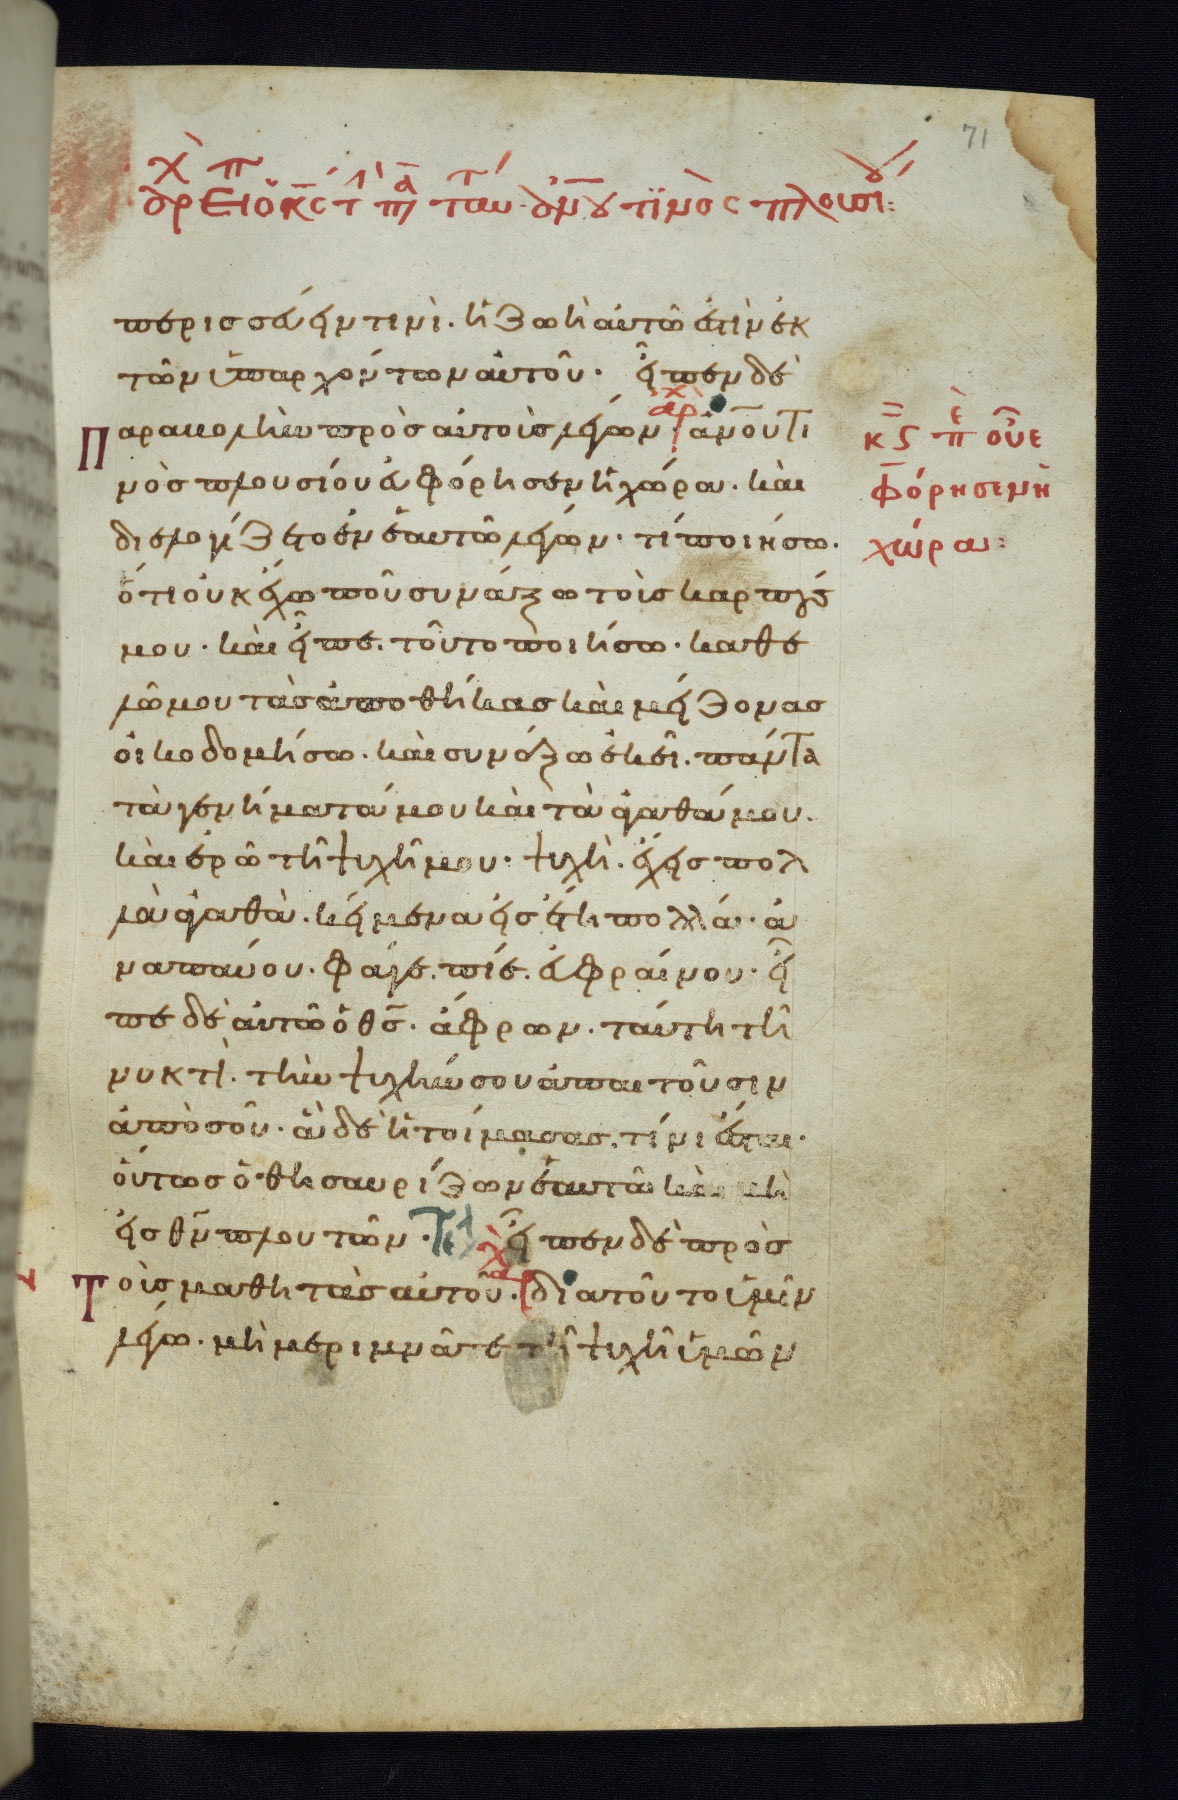 71
περισσεύειν τινὶ. ἡ ζωὴ αὐτῶ ἐστὶν ἐκ
τῶν ὑπαρχόντων αὐτοῦ. εἶπεν δὲ
Παραβολὴν πρὸς αὐτοὺς λέγων. ἀνο̅υ τι
νὸς πλουσίου εὐφόρησεν ἡ χώρα. καὶ
διελογίζετο ἐν ἑαυτῶ λέγων. τί ποιήσω.
ὅτι οὐκ ἔχω ποῦ συνάξω τοὺς καρπούς
μου. καὶ εἶπε. τοῦτο ποιήσω. καθε
λῶ μου τὰς ἀποθήκας καὶ μείζονας
οἰκοδομήσω. καὶ συνάξω ἐκεῖ. πάντα
τὰ γενήματά μου καὶ τὰ ἀγαθά μου.
καὶ ἐρῶ τῆ ψυχῆ μου. ψυχὴ. ἔχεις πολ
λὰ ἀγαθὰ. κείμενα εἰς ἔτη πολλά. ἀ
ναπαύου. φάγε. πίε. εὐφραίνου. εἶ
πε δὲ αὐτῶ ὁ θς̅. ἄφρων. ταύτη τῆ
νυκτὶ. τὴν ψυχήν σου ἀπαιτοῦσιν
ἀπὸ σοῦ. ἃ δὲ ἡτοίμασας. τίνι ἔσται.
οὕτως ὁ θησαυρίζων ἑαυτῶ καὶ μὴ
εἰς θν̅ πλουτῶν. εἶπεν δὲ πρὸς
Τοὺς μαθητὰς αὐτοῦ. διατοῦτο ὑμῖν
λέγω. μὴ μεριμνᾶτε τῆ ψυχῆ ὑμῶν
κς π̅ ὁὐε
φόρησεν ἡ
χώρα: